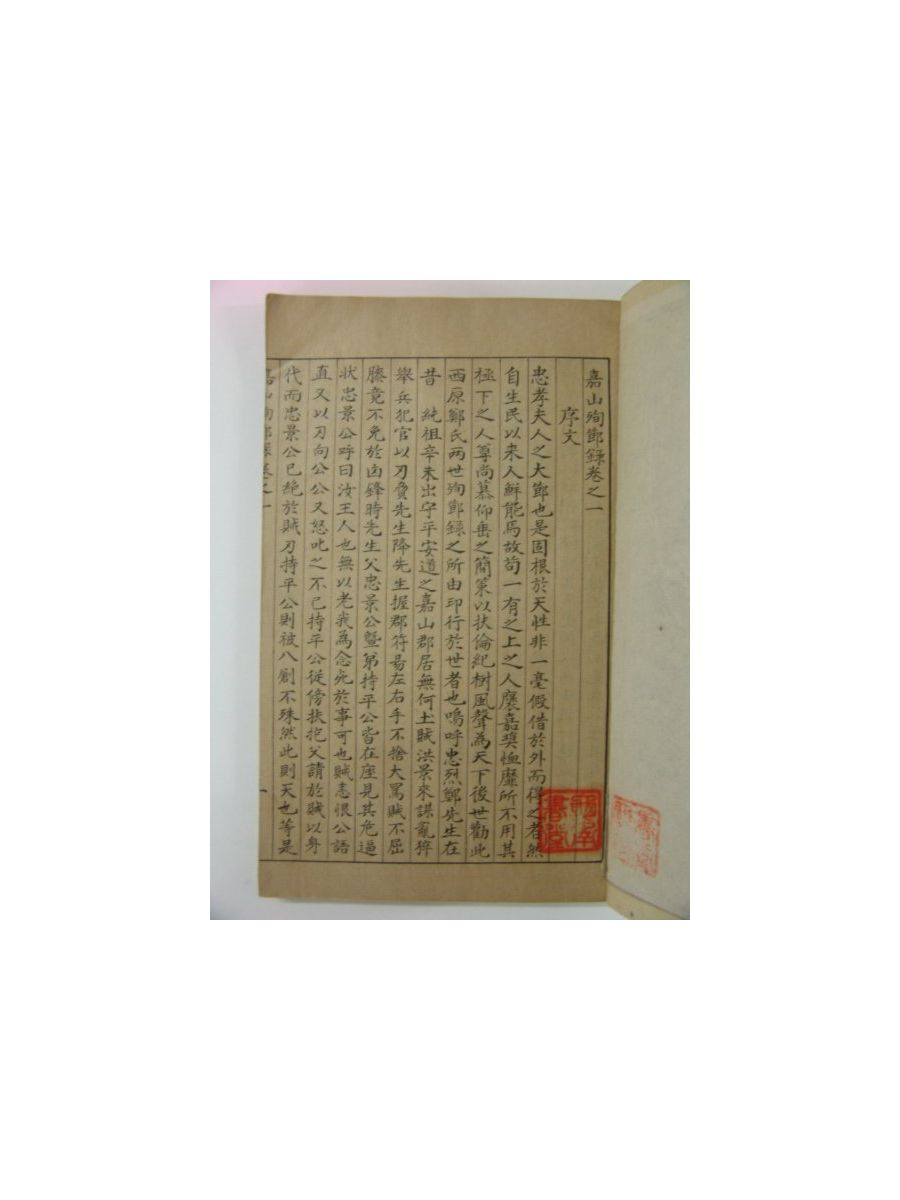 嘉山殉節錄卷之一
序文
忠孝夫人之大節也是固根於天性非一毫假借於外而得之者然
自生民以来人鮮能焉故苟一有之上之人褒嘉獎恤靡所不用其
極下之人尊尚慕仰垂之簡策以扶倫紀樹風聲為天下後世勸此
西原鄭氏兩世殉節錄之所由印行於世者也嗚呼忠烈鄭先生在
昔 純祖辛未出守平安道之嘉山郡居無何土賊洪景來謀亂猝
舉兵犯官以刃脅先生降先生握郡符易左右手不捨大罵賊不屈
膝竟不免於凶鋒時先生父忠景公曁弟持平公皆在座見其危逼
狀忠景公呼曰汝王人也無以老我為念死於事可也賊恚恨公語
直又以刃向公公又怒叱之不已持平公從傍扶抱父請於賊以身
代而忠景公已絶於賊刃持平公則被八創不殊然此則天也等是
嘉山殉節錄卷之一 一